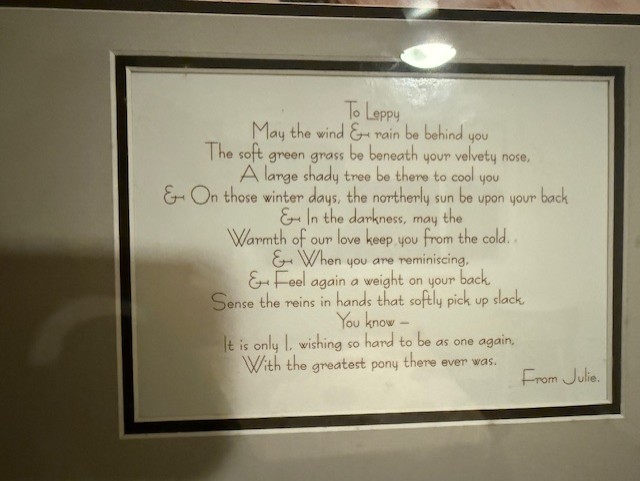 To Leppy
May the wind & rain be behind you
The soft green grass be beneath your velvety nose,
A large shady tree be there to cool you
& On those winter days, the northerly sun be upon your back
& In the darkness, may the
Warmth of our love keep you from the cold.
& When you are reminiscing,
& Feel again a weight on your back,
Sense the reins in hands that softly pick up slack,
You know –
It is only I, wishing so hard to be as one again,
With the greatest pony there ever was.
From Julie.